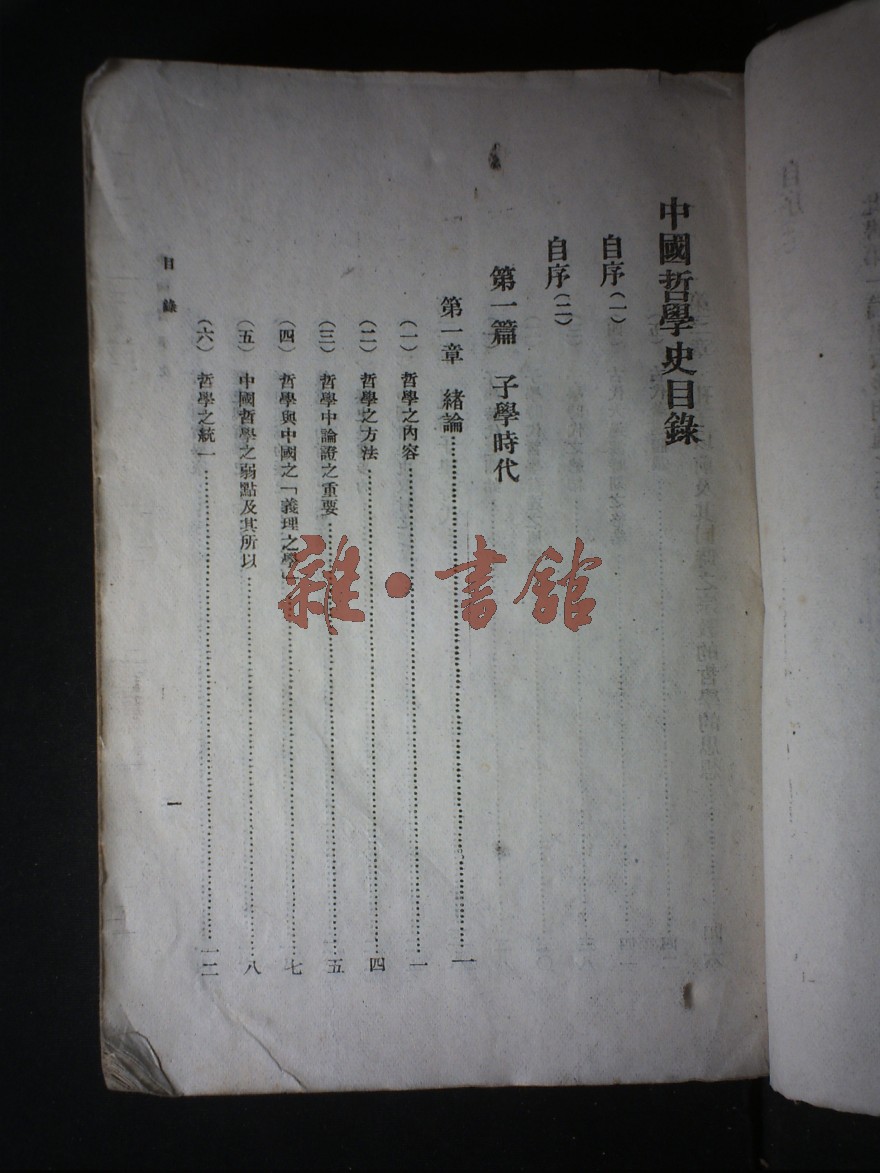 中國哲學史目錄
自序(一)
自序(二)
第一篇 子學時代
第一章 緒論…………一
(一) 哲學之內容…………一
(二) 哲學之方法…………四
(三) 哲學中論證之重要…………五
(四) 哲學與中國之「義理之學」…………七
(五) 中國哲學之弱點及其所以…………八
(六) 哲學之統一…………一二
目錄
一
雜·書館